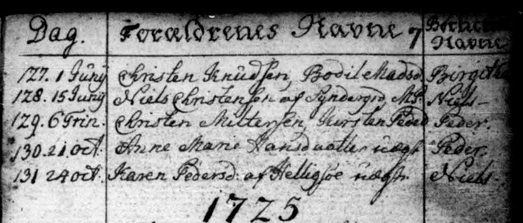 Dag. Forældrenes Navne
Navne
127. 1 Junÿ Christen Knudsen, Bodil Madsd. Birgethe
128. 15 Junÿ Niels Christensøn af Niels
129. 6 Trin. Christen Peder.
130. 21. oct. Anne Marie Hansdaatter uægt Peder.
131 24 oct. Karen Pedersd: af Helligsøe uægt Niels
1725